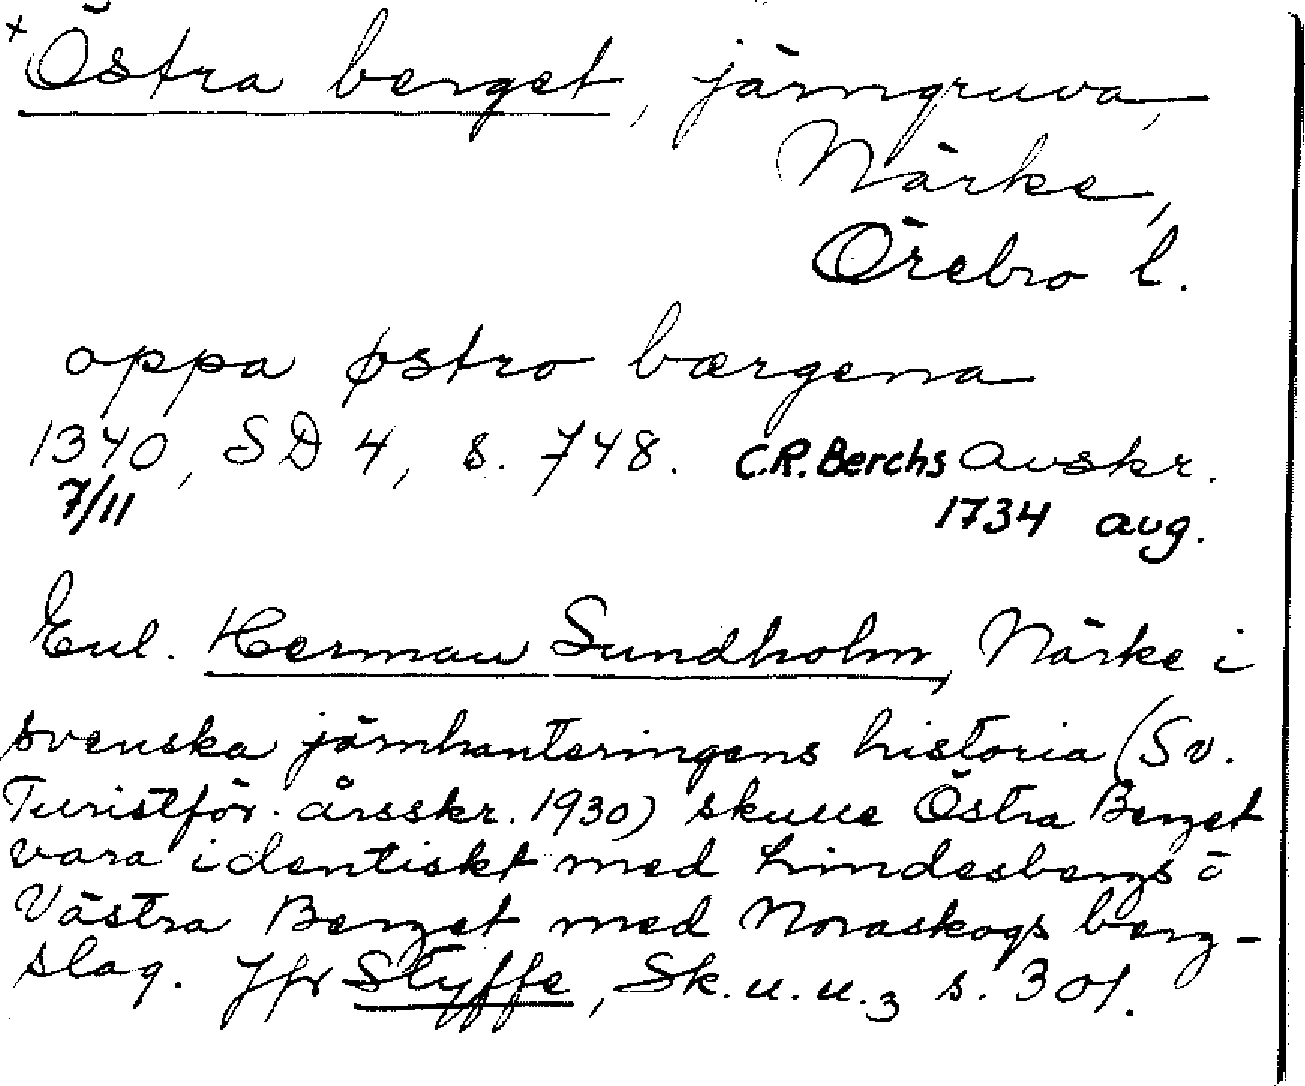 +Östra berget, järngruva,
Närke,
Örebro l.
oppa østro bærgena
1340, SD 4, s. 748. C.R. Berchs avskr.
7/11 1734 avg.
Enl. Herman Sundholm, Närke i
svenska järnhanteringens historia (Sv.
Turistför. årsskr. 1930) skulle Östra Berget
vara identiskt med Lindesbergs o
Västra Berget med Noraskogs berg-
slag. Jfr Styffe, Sk.u.u.3 s. 301.